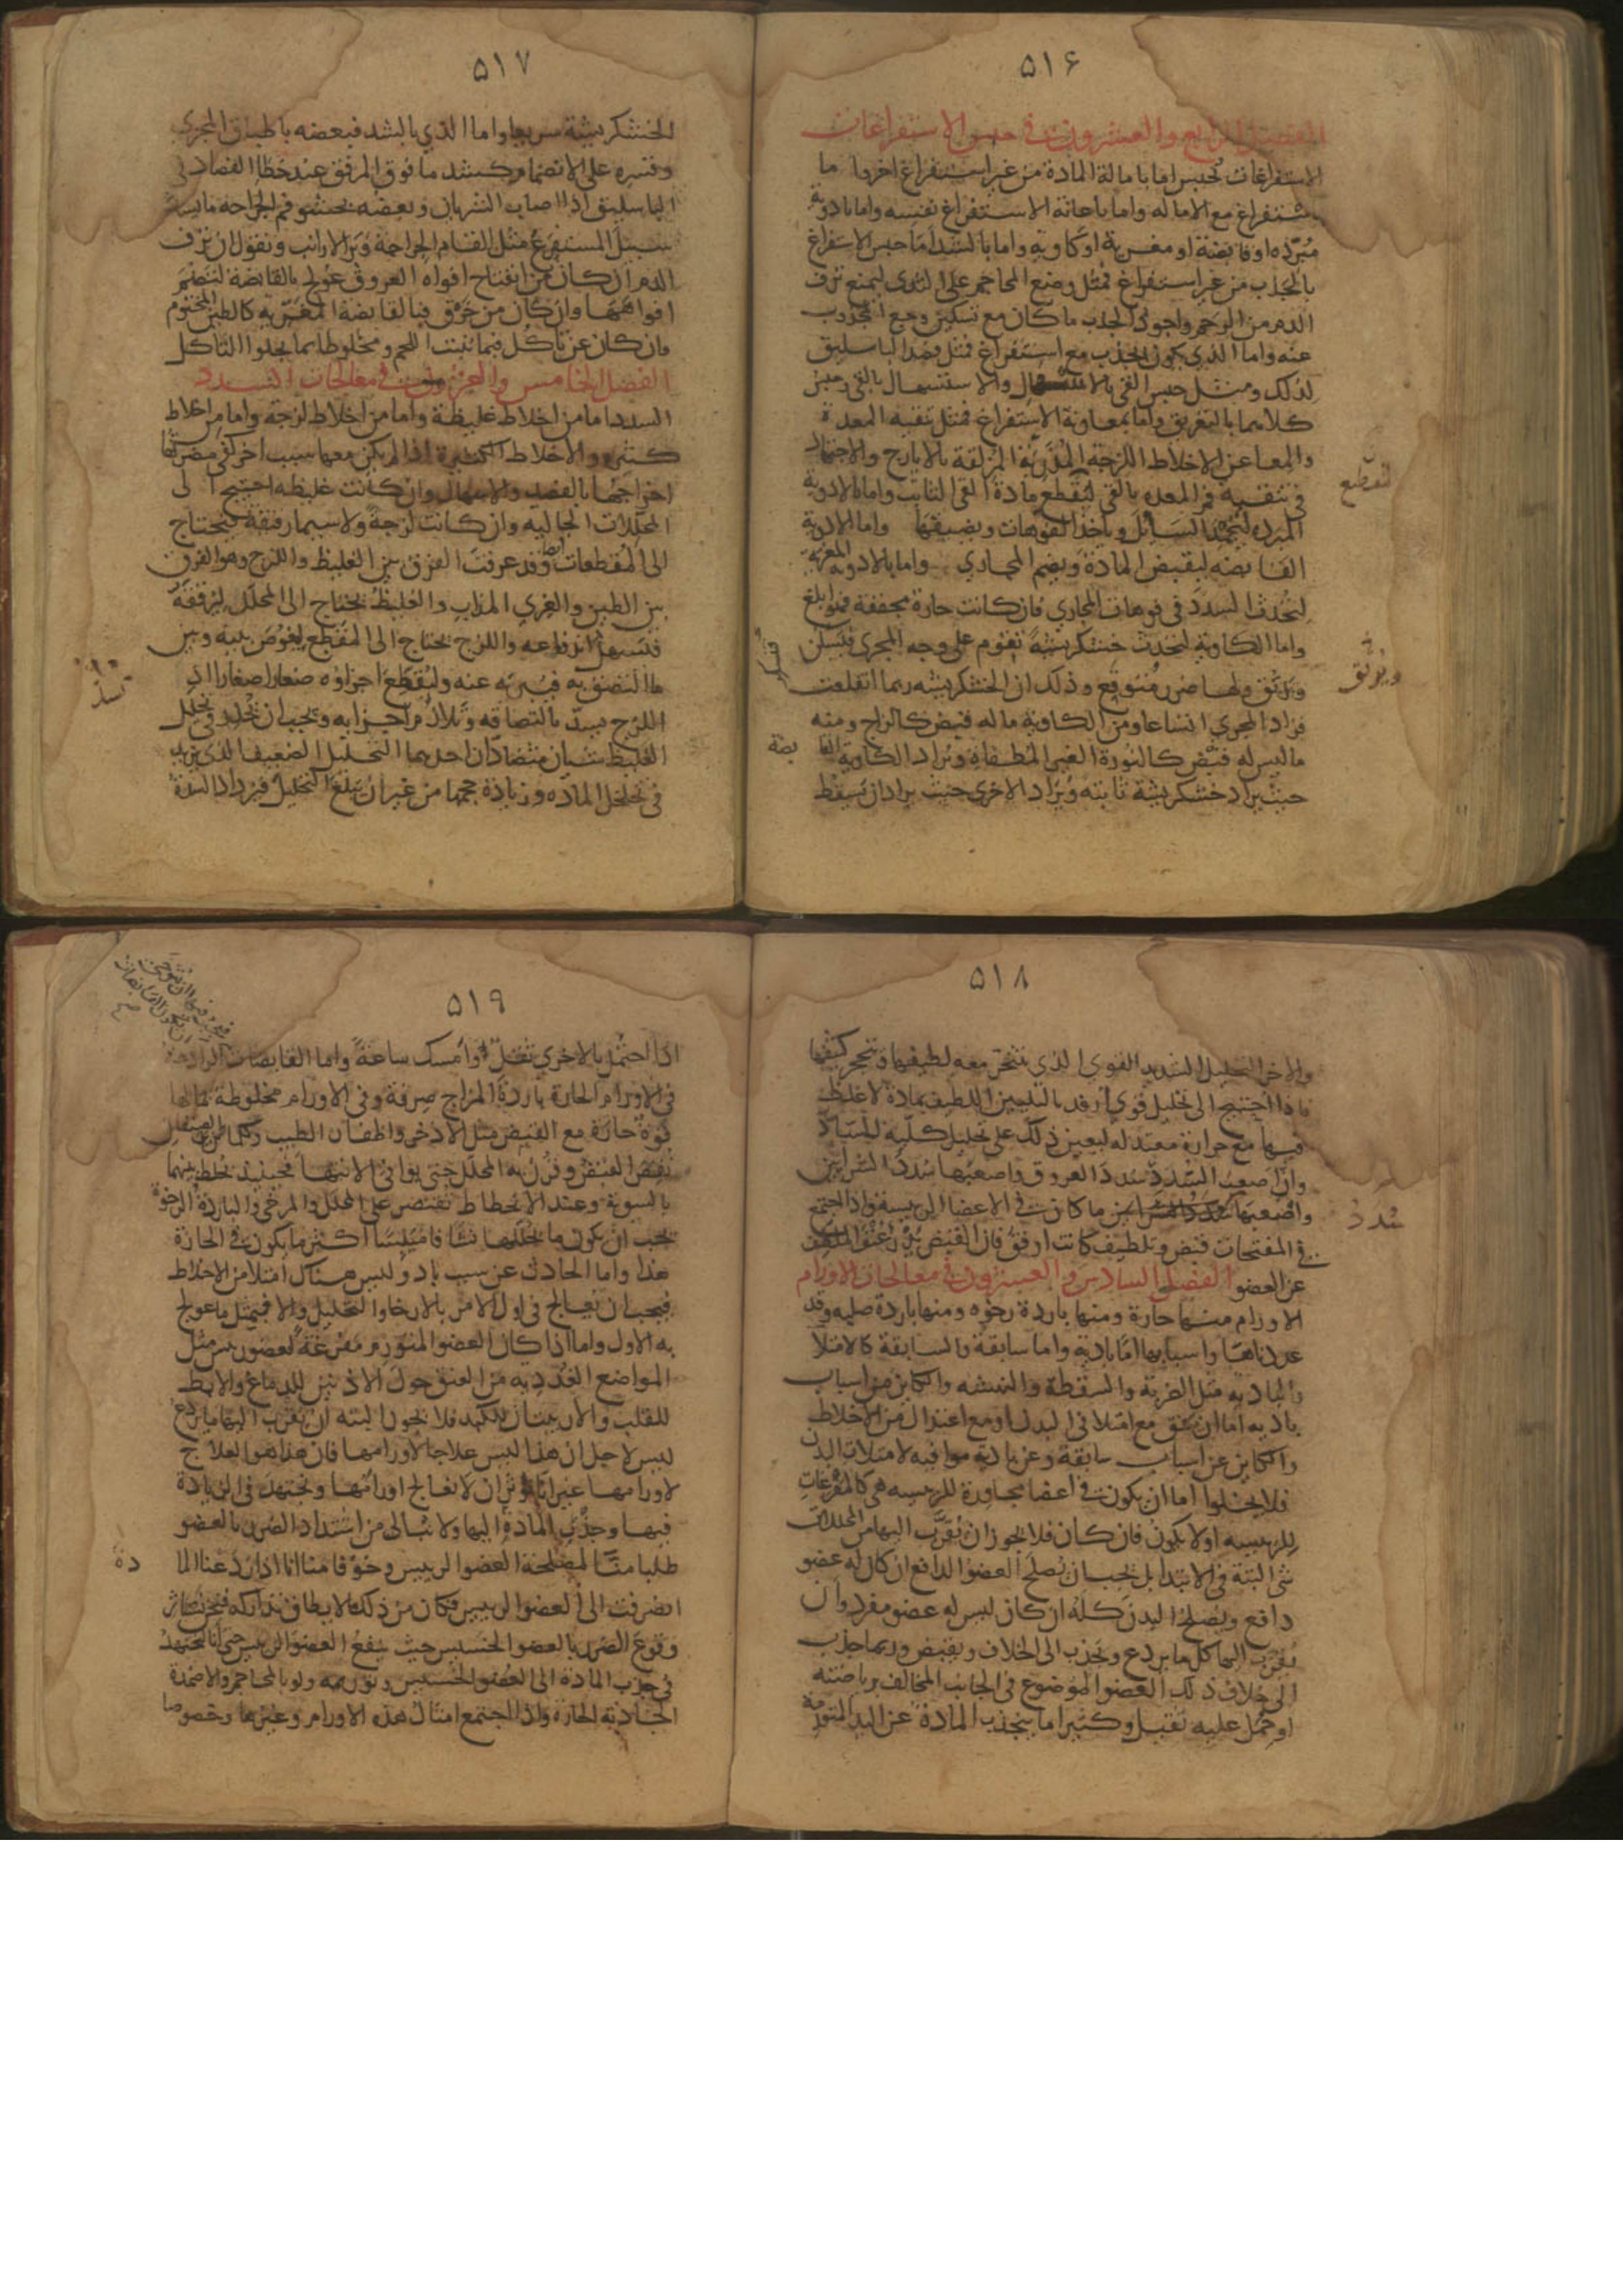 ٥١۶
الفصل الرابع والعشرون في حبس الاستفراغات
الاستفراغات تحبس اما بامالة المادة من غير استفراغ اخر واما
باستفراغ مع الاماله واما باعانة الاستفراغ نفسه واما بادوية
مبرّده او قابضة او مغرية او كاوية واما بالشد اما حبس الاستفراغ
بالجذب من غير استفراغ فمثل وضع المحاجم على الثدي ليمنع نزف
الدم من الرحم واجود الجذب ما كان مع تسكين وجع المجذوب
عنه واما الذي يكون بجذب مع استفراغ فمثل فصد الباسليق
لذلك ومثل حبس القي بالاسهال والاسهال بالقي وحبس
كلاهما بالتعريق واما بمعاونة الاستفراغ فمثل تنقية المعدة
والمعا عن الاخلاط اللزجة المذربة المزلقة بالايارج والاجتهاد
في تنقيه فم المعده بالقي لتقطع مادة القي الثابت واما بالادوية
المبرده لتجمد السائل وياخذ الفوهات ويضيقها واما الادوية
القابضه ليقبض المادة ويضم المجاري واما بالادويه المغريه
لتحدث السدد في فوهات المجاري فان كانت حارة مجففة فهو ابلغ
واما الكاوية لتحدث خشكريشة تقوم على وجه المجرى فتسكن
وترتق ولها ضرر متوقع وذلك ان الخشكريشه ربما انقلعت
فزاد المجري اتساعا ومن الكاوية ما له قبض كالزاج ومنه
ما ليس له قبض كالنورة الغير المطفاه ويراد الكاوية القا بضة
حيث يراد خشكريشة ثابته ويراد الاخرى حيث يراد ان يسقط
لتقطع
ويوثق
٥١٧
الخشكريشة سريعا واما الذي بالشد فبعضه باطباق المجرى
وقسره على الانضمام كشد ما فوق المرفق عند خطا الفصاد في
الباسليق اذا اصاب الشريان وبعضه بحشو فم الجراحه ما يسد
سبيل المستفرغ مثل القام الجراحة وبر الارانب ونقول ان نزف
الدم ان كان من انفتاح افواه العروق عولج بالقابضة لتضم
افواهها وان كان من خرق فبالقابضة المغريه كالطين المختوم
وان كان عن تاكل فبما ينبت اللحم ومخلوطا بما يجلوا التاكل
الفصل الخامس والعشرون في معالجات السدد
السدد اما من اخلاط غليظة واما من اخلاط لزجة واما من اخلاط
كثيره والاخلاط الكثيرة اذا لم يكن معها سبب اخر كفى مضرتها
اخراجها بالفصد والاسهال وان كانت غليظه احتيج الى
المحللات الجاليه وان كانت لزجة ولا سيما رقيقة فيحتاج
الى المقطعات وقد عرفت الفرق بين الغليظ واللزج وهو الفرق
بين الطين والغري المذاب والغليظ يحتاج الى المحلل ليرققه
فيسهل اندفاعه واللزج يحتاج الى المقطع ليغوص بينه وبين
ما التصق به فيبريه عنه وليقطع اجزاوه صغارا صغارا اذ
اللزج يسد بالتصاقه وتلازم اجزايه ويجب ان يحذر في تحليل
الغليظ شيان متضادان احدهما التحليل الضعيف الذي يزيد
في تخلخل الماده وزيادة حجمها من غير ان يبلغ التحليل فيزداد السدة
٥١٨
والاخر التحليل الشديد القوي الذي يتبخر معه لطيفها ويتحجر كثيفها
فاذا احتيج الى تحليل قوي اردف بالتليين اللطيف بمادة لا غلظ
فيها مع حرارة معتدله ليعين ذلك على تحليل كلية للساد
وان اصعب السدد سدد العروق واصعبها سدد الشرايين
واصعبها ما كانت في الاعضا الرييسة واذا اجتمع
في المفتحات قبض وتلطيف كانت اوفق فان القبض يدرا عنف الملطف
عن العضو الفصل السادس والعشرون في معالجات الاورام
الاورام منها حارة ومنها باردة رخوه ومنها باردة صلبه وقد
عددناها واسبابها اما باديه واما سابقة والسابقة كالامتلا
والباديه مثل الضربة والسقطة والنهشه والكاين من اسباب
باديه اما ان يتفق مع امتلا في البدن او مع اعتدال من الاخلاط
والكاين عن اسباب سابقة وعن بادية موافيه لامتلات البدن
فلا يخلوا اما ان يكون في اعضا مجاورة للرييسه هي كالمفرغات
للرييسه او لا يكون فان كان فلا يجوز ان يقرب اليها من المحللات
شي البتة في الابتدا بل يجب ان يصلح العضو الدافع ان كان له عضو
دافع ويصلح البدن كله ان كان ليس له عضو مفرد وان
يقرب اليها كل ما يردع ويجذب الى الخلاف ويقبض وربما جذب
الى خلاف ذلك العضو الموضوع في الجانب المخالف برياضته
او حمل عليه ثقيل وكثيرا ما ينجذب المادة عن اليد المتورمة
سدد
٥١٩
اذا احتمل بالاخرى ثقل وامسك ساعة واما القابضات الرادعة
في الاورام الحارة باردة المزاج صرفة وفي الاورام مخلوطة بمالها
قوة حارة مع القبض مثل الاذخر واظفار الطيب وكلما
نقص القبض وقرن به المحلل حتى يوافي الانتها فحينيذ يخلط بينهما
بالسوية وعند الانحطاط تقتصر على المحلل والمرخي والباردة الرخوة
يجب ان يكون ما يحللها اكثر ما يكون في الحارة
هذا واما الحادث عن سبب باد وليس هناك امتلا من الاخلاط
فيجب ان يعالج في اول الامر بالارخا والتحليل والا فيمثل ما عولج
به الاول واما اذا كان العضو المتورم مفرغة لعضو رييس مثل
المواضع الغدديه من العنق حول الاذنين للدماغ والابط
للقلب والاربيتان للكبد فلا يجوز البته ان يقرب اليها ما يردع
ليس لاجل ان هذا ليس علاجا لاورامها فان هذا هو العلاج
لاورامها غير انا نوثر ان لا نعالج اورامها ونجتهد في الزيادة
فيها وجذب المادة اليها ولا نبالي من اشتداد الضرر بالعضو
طلبا منا لمصلحة العضو الرييس وخوفا منا انا اذا ردعنا الما دة
انصرفت الى العضو الرييس فكان من ذلك ما لا يطاق تداركه فنحن نوثر
وقوع الضرر بالعضو الخسيس حيث ينفع العضو الرييس حتى انا نجتهد
في جذب المادة الى العضو الخسيس وتوريمه ولو بالمحاجم والاضمدة
الجاذبة الحارة واذا اجتمع امثال هذه الاورام وغيرها وخصوصا